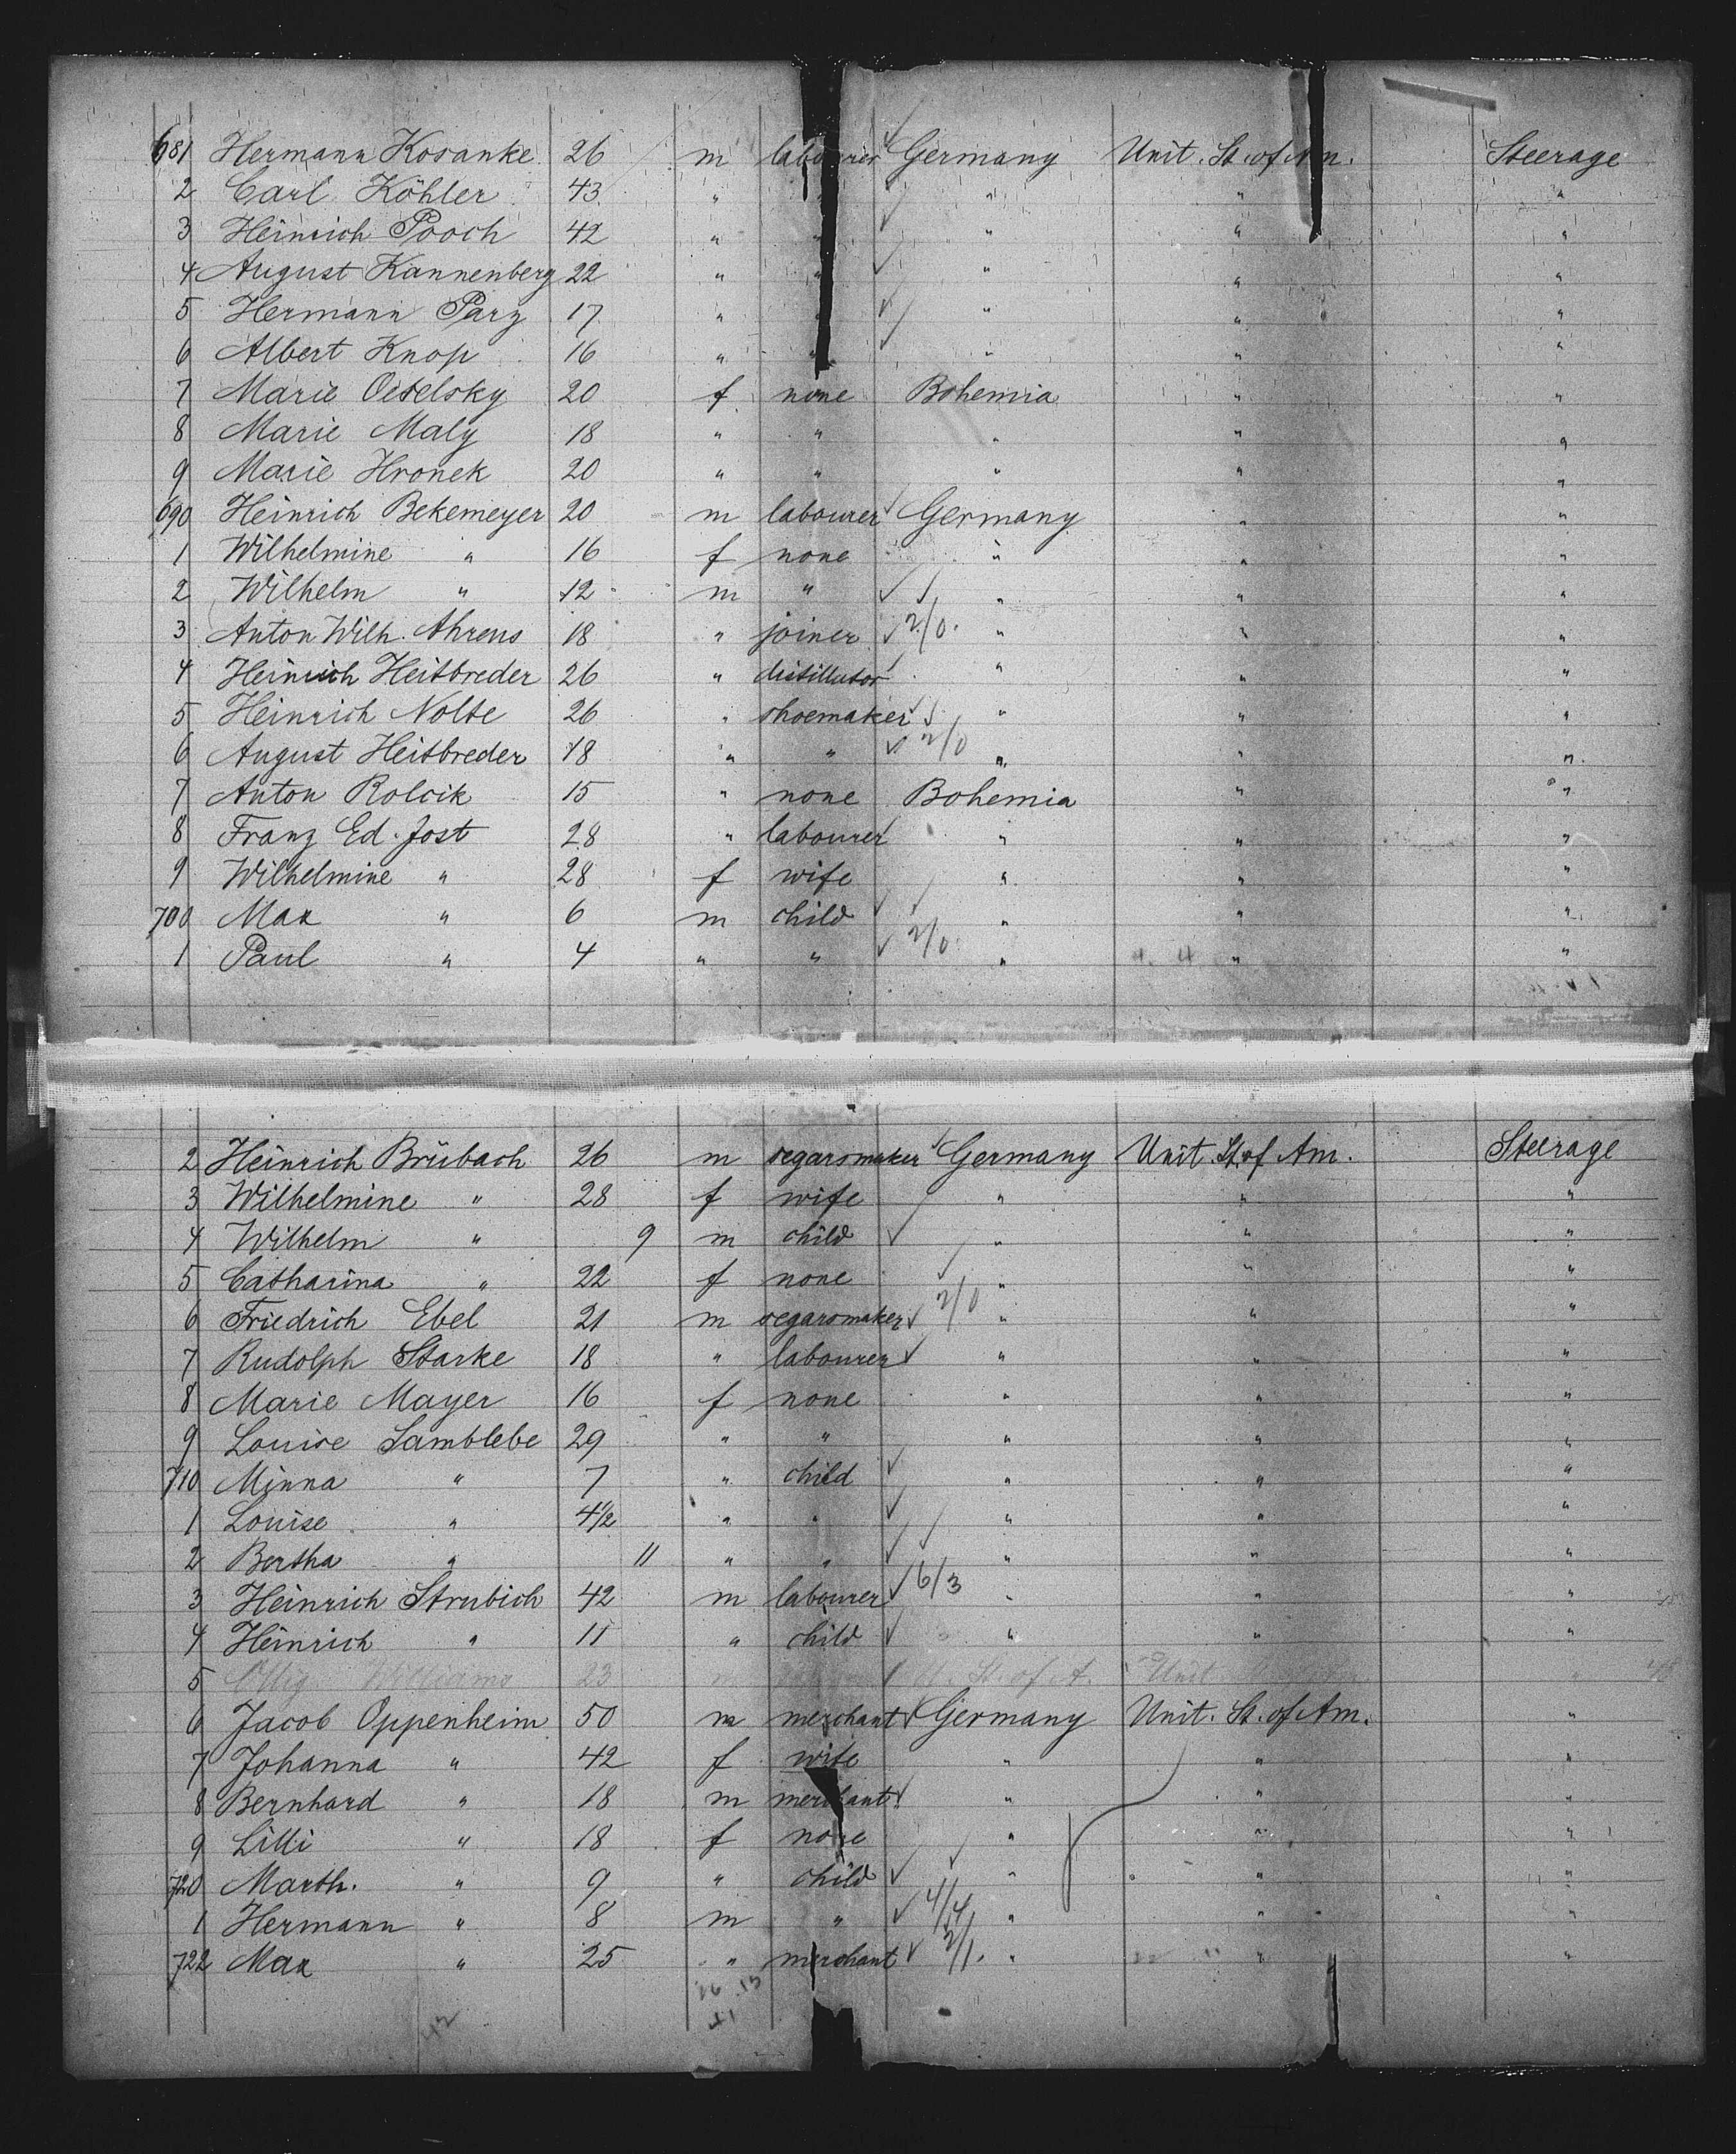 681 Hermann Kosanke 26 m labourer Germany Unit. St. of Am. Steerage
2 Carl Köhler 43 " " " " "
3 Heinrich Pooch 42 " " " " "
4 August Kannenberg 22 " " " " "
5 Hermann Parz 17 " " " " "
6 Albert Knop 16 " " " " "
7 Marie 20 f none Bohemia " "
8 Marie Maly 18 " " " " "
9 Marie Hronek 20 " " " " "
690 Heinrich Bekemeyer 20 m labourer Germany " "
1 Wilhelmine " 16 f none " " "
2 Wilhelm " 12 m " " " "
3 Anton Wilh. Ahrens 18 " joiner 2/0. " " "
4 Heinrich Heitbreder 26 " distillator " " "
5 Heinrich Nolte 26 " shoemaker " " "
6 August Heitbreder 18 " " 2/0 " " "
7 Anton Rolcik 15 " none Bohemia " "
8 Franz Ed. Jost 28 " labourer " " "
9 Wilhelmine " 28 f wife " " "
700 Max " 6 m child " " "
1 Paul " 4 " " 2/0 " " "
2 Heinrich Brübach 26 m segarsmaker Germany Unit. St. of Am. Steerage
3 Wilhelmine " 28 f wife " " "
4 Wilhelm " 9 m child " " "
5 Catharina " 22 f none " " "
6 Friedrich Ebel 21 m segarsmaker 2/0 " " "
7 Rudolph Starke 18 " labourer " " "
8 Marie Mayer 16 f none " " "
9 Louise Lamblebe 29 " " " " "
710 Minna " 7 " child " " "
1 Louise " 4 1/2 " " " " "
2 Bertha " 11 " " " " "
3 Heinrich Strubich 42 m labourer 6/3 " " "
4 Heinrich " 11 " child " " "
5 Williams 23 m U. St. of A. Unit. "
6 Jacob Oppenheim 50 m merchant Germany Unit. St. of Am. "
7 Johanna " 42 f wife " " "
8 Bernhard " 18 m merchant " " "
9 Lilli " 18 f none " " "
720 Marth. " 9 " child " " "
1 Hermann " 8 m " 4/4 " " "
722 Max " 25 " merchant 2/1. " " "